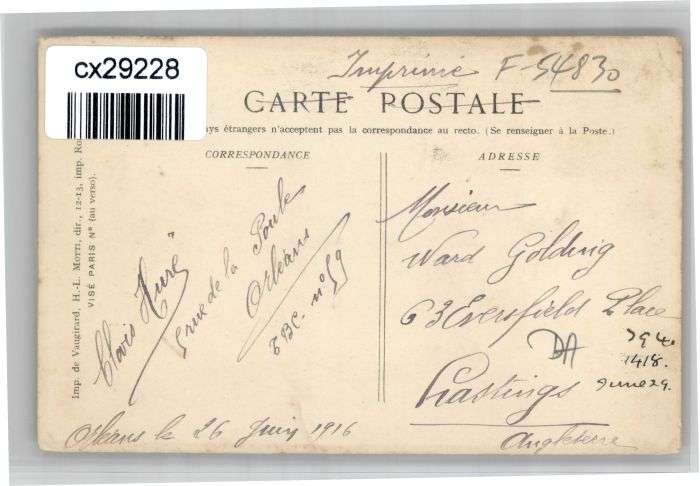 cx29228
Imprimé F-54830
CARTE POSTALE
ays étrangers n'acceptent pas la correspondance au recto. (Se renseigner à la Poste.)
CORRESPONDANCE
ADRESSE
Imp. de Vaugirard, H.-L. Motti, dir., 12-13, imp. Ro
VISÉ PARIS Nº (au verso).
Clovis Huré
5 rue de la Poule
Orléans
TBC. nº 59
Orléans le 26 Juin 1916
Monsieur
Ward Golding
63 Eversfield Place
Hastings
Angleterre
DA
1418.
June 29.